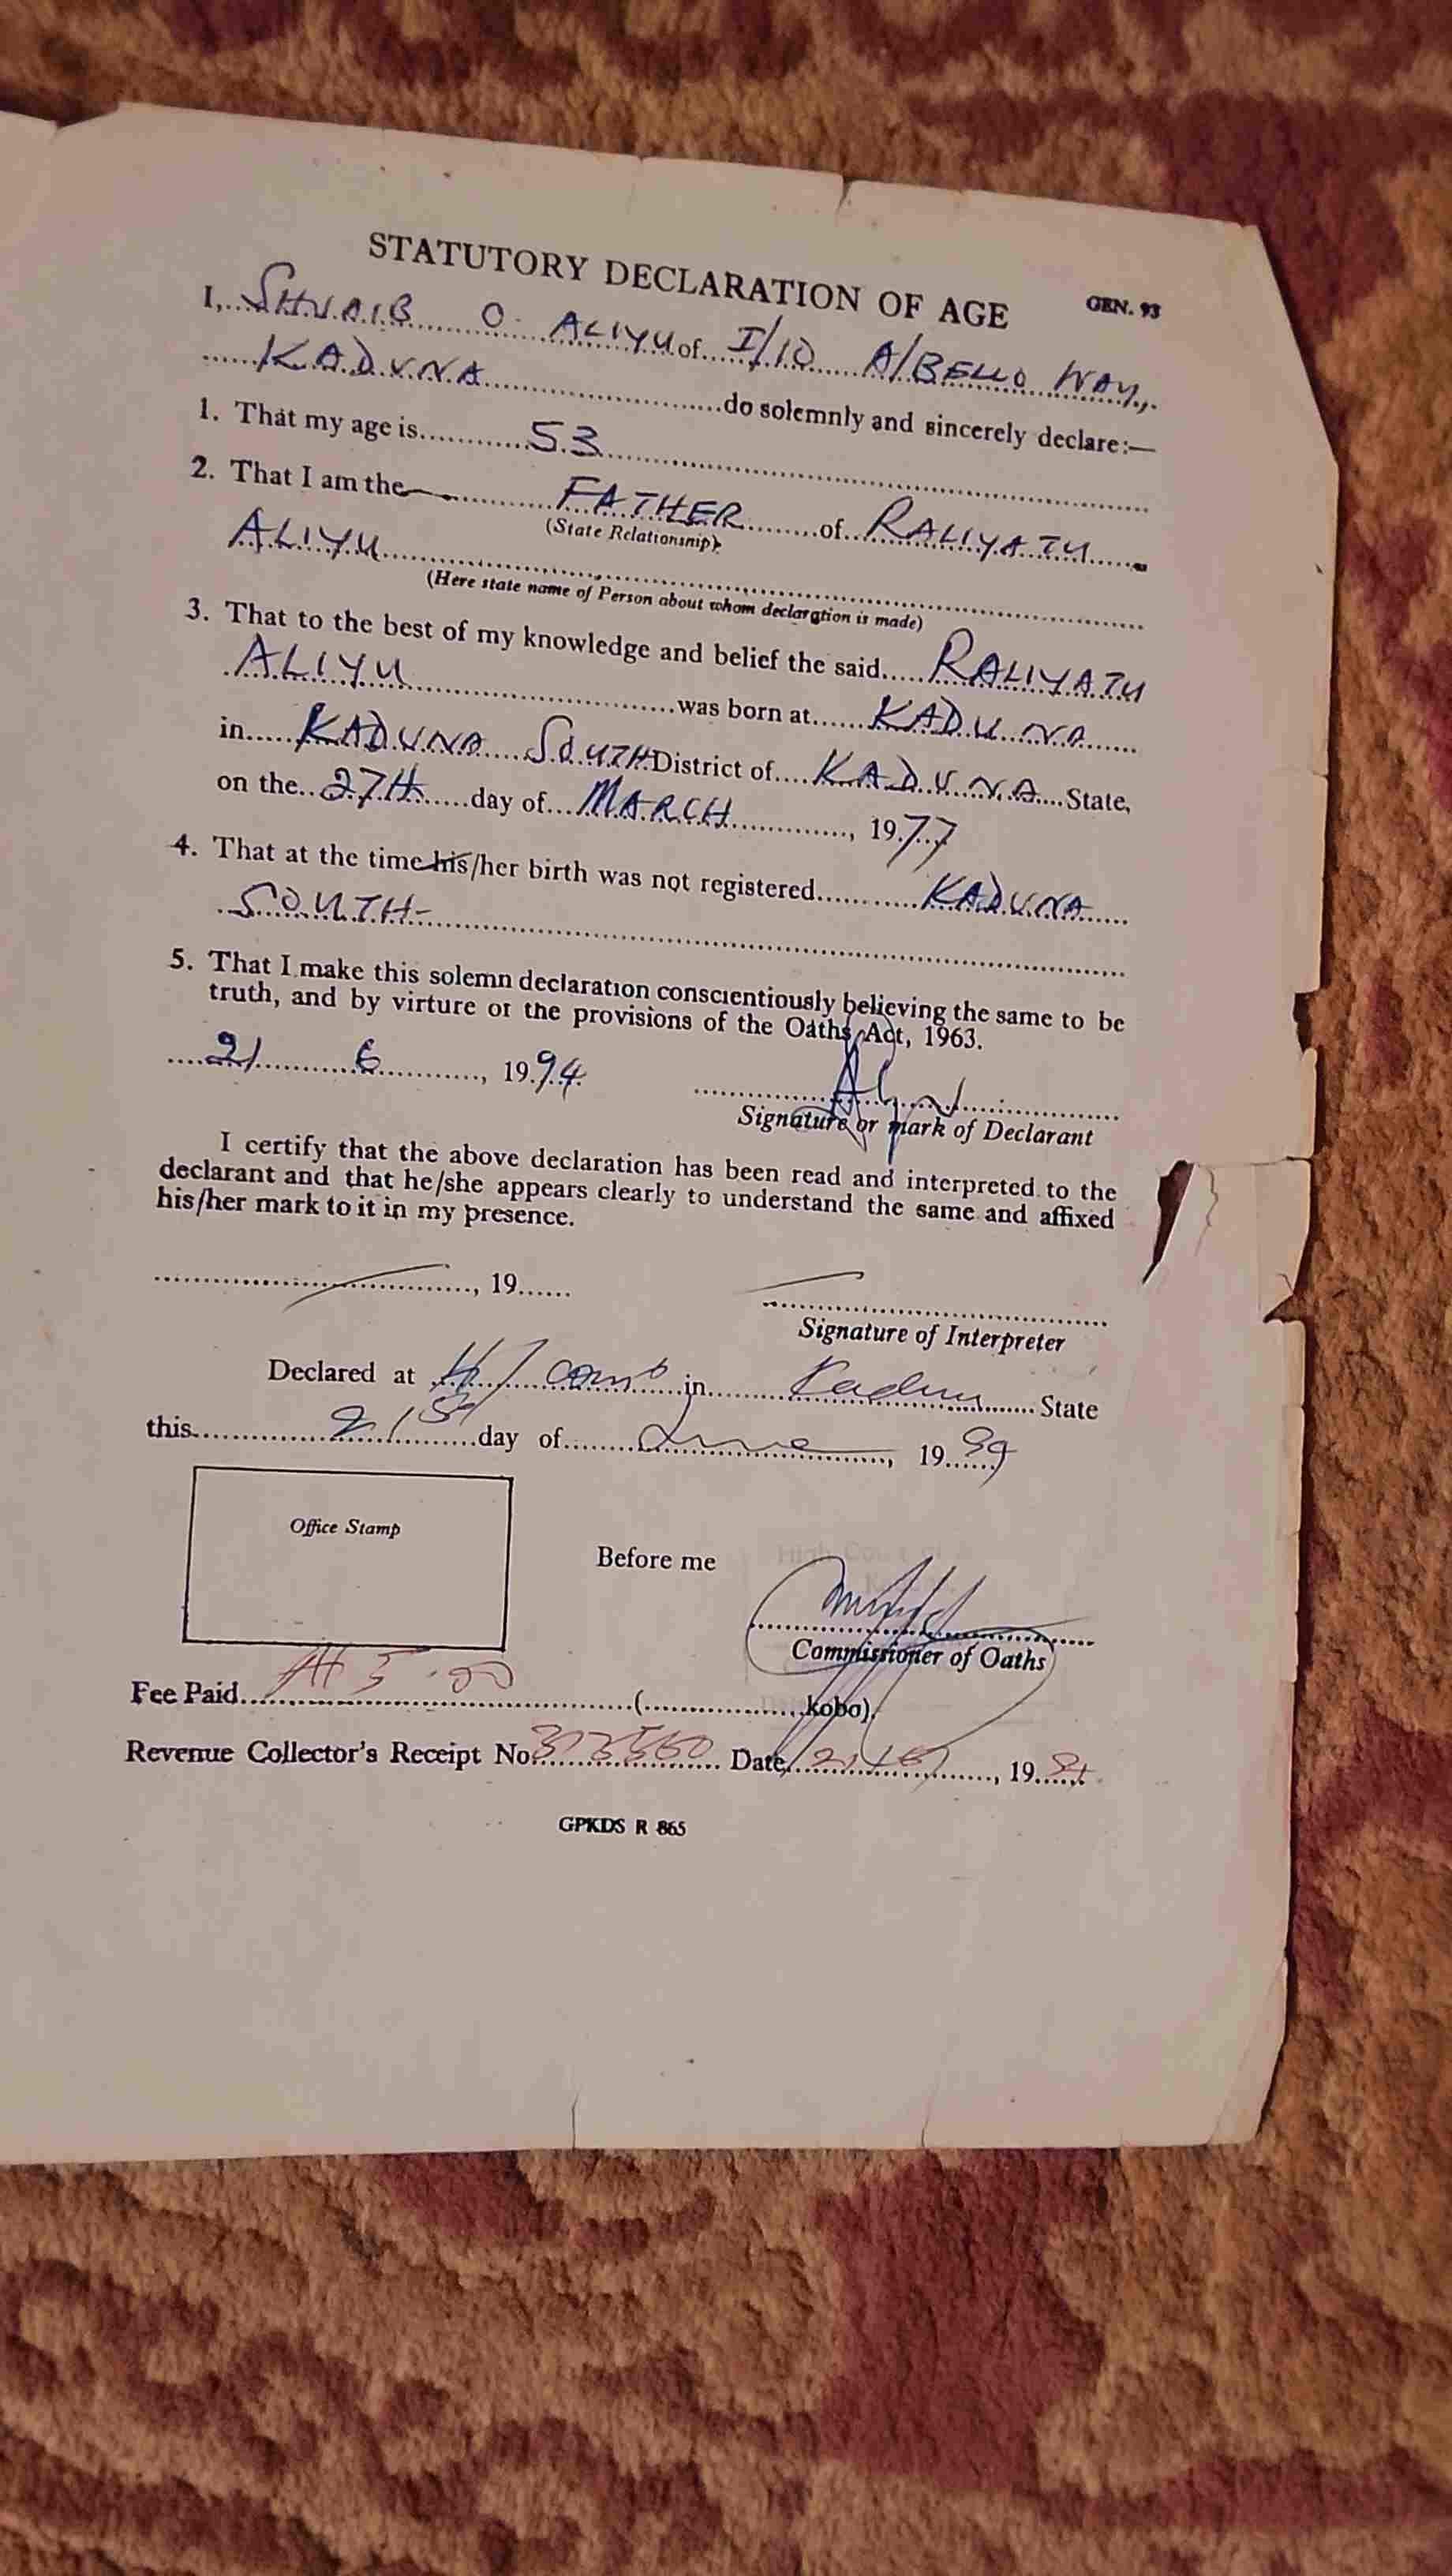 STATUTORY DECLARATION OF AGE
GEN. 93
I, SHUAIB O. ALIYU of I/10 A/BELLO WAY,
KADUNA do solemnly and sincerely declare:—
1. That my age is 53
2. That I am the FATHER of RALIYATU
(State Relationship)
ALIYU
(Here state name of Person about whom declaration is made)
3. That to the best of my knowledge and belief the said RALIYATU
ALIYU was born at KADUNA
in KADUNA SOUTH District of KADUNA State,
on the 27TH day of MARCH, 1977
4. That at the time his/her birth was not registered KADUNA
SOUTH
5. That I make this solemn declaration conscientiously believing the same to be
truth, and by virture of the provisions of the Oaths Act, 1963.
21 6, 1994
Signature or mark of Declarant
I certify that the above declaration has been read and interpreted to the
declarant and that he/she appears clearly to understand the same and affixed
his/her mark to it in my presence.
, 19
Signature of Interpreter
Declared at in Kaduna State
this 21st day of June, 19
Office Stamp
Before me
Commissioner of Oaths
Fee Paid ₦ 5.00 ( kobo).
Revenue Collector's Receipt No. Date 21/6/, 19
GPKDS R 865